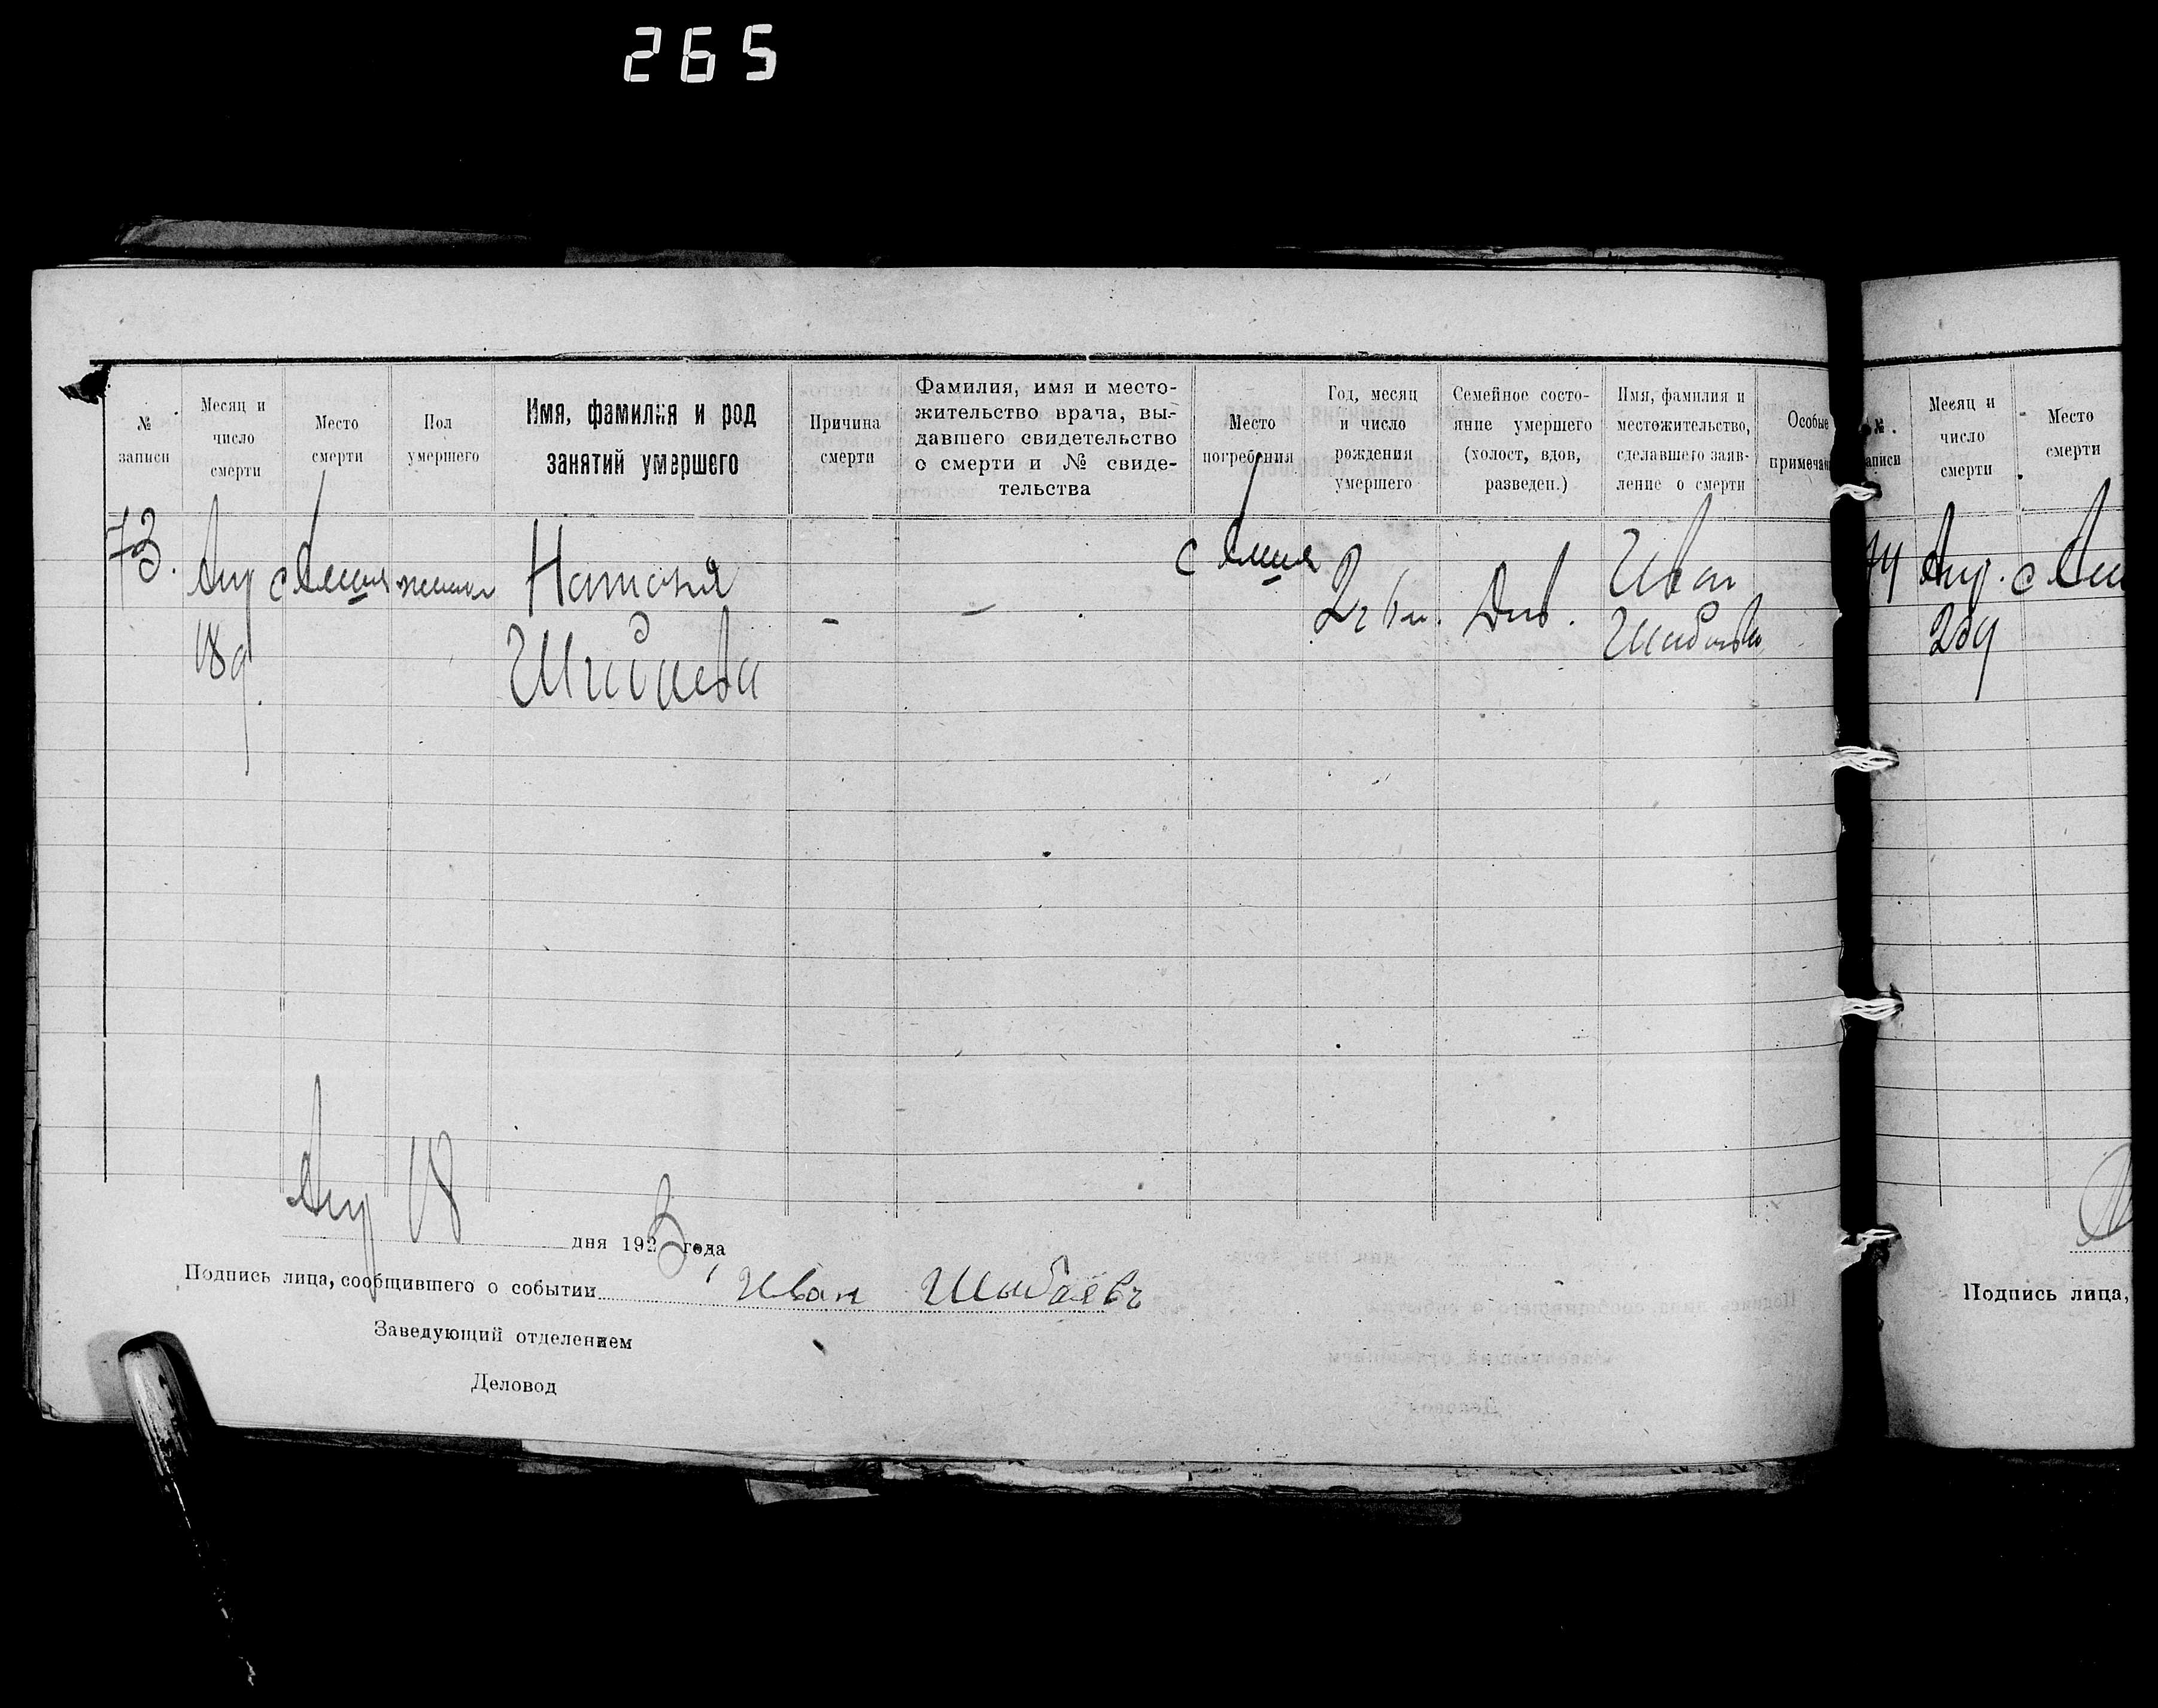 265
№ записи
Месяц и число смерти
Место смерти
Пол умершего
Имя, фамилия и род занятий умершего
Причина смерти
Фамилия, имя и место-
жительство врача, вы-
давшего свидетельство
о смерти и № свиде-
тельства
Место погребения
Год, месяц
и число
рождения
умершего
Семейное состо-
яние умершего
(холост, вдов,
разведен.)
Имя, фамилия и
местожительство,
сделавшего заяв-
ление о смерти
Особые
примечан
73.
18д
Наталья
-
-
2г 6м.
Дев.
Иван
18
дня 1923 года
Подпись лица, сообщившего о событии Иван Шыбаевъ
Заведующий отделением
Деловод
№
аписи
Месяц и
число
смерти
Место
смерти
74
Подпись лица,